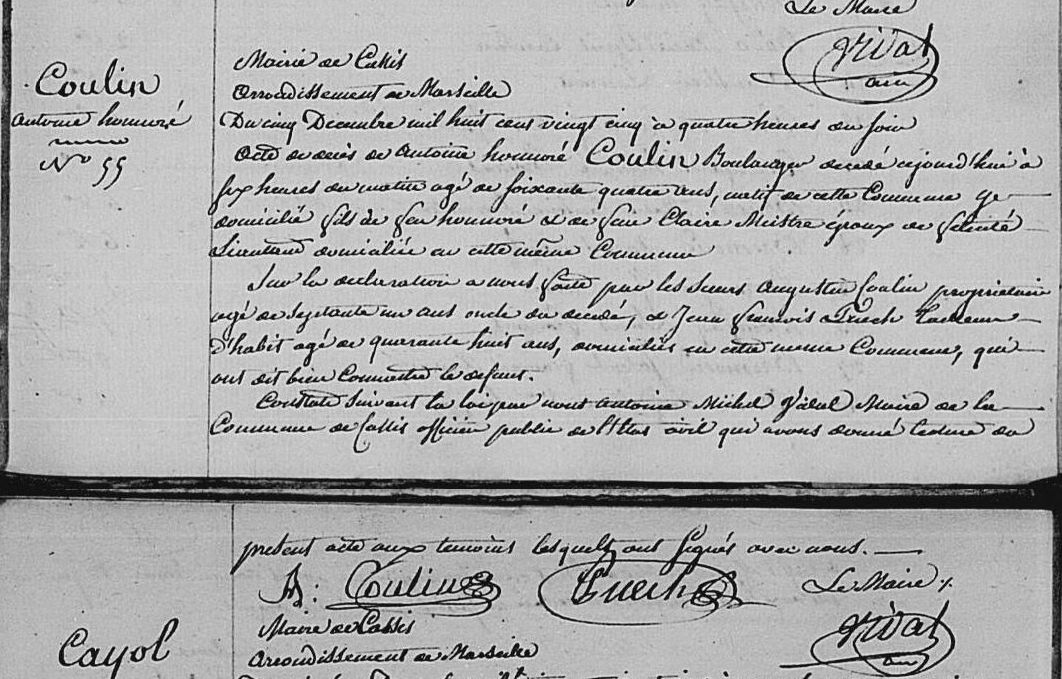 Le Maire
Vidal
Coulin
antoine honnoré
N° 55
Mairie de Cassis
Arrondissement de Marseille
Du cinq Decembre mil huit cens vingt cinq à quatre heures du soir
Acte de decés de Antoine honnoré Coulin Boulanger decedé cejourd'hui à
six heures du matin agé de soixante quatre ans, natif de cette Commune y
domicilié fils de feu honnoré et de feue Claire Meistre époux de felicité
Lieutaud domiciliée en cette même Commune
Sur la declaration a nous faite par les sieurs augustin Coulin proprietaire
agé de septante un ans oncle du decedé, et Jean francois Tailleur
D'habit agé de quarante huit ans, domiciliés en cette meme Commune, qui
ont dit bien Connoitre le defunt.
Constaté suivant la loi par nous antoine Michel Vidal Maire de la
Commune de Cassis officier public de l'Etat civil qui avons donné lecture du
present acte aux temoins lesquels ont signés avec nous.
A: Coulin
Le Maire
Vidal
Cayol
Mairie de Cassis
Arrondissement de Marseille